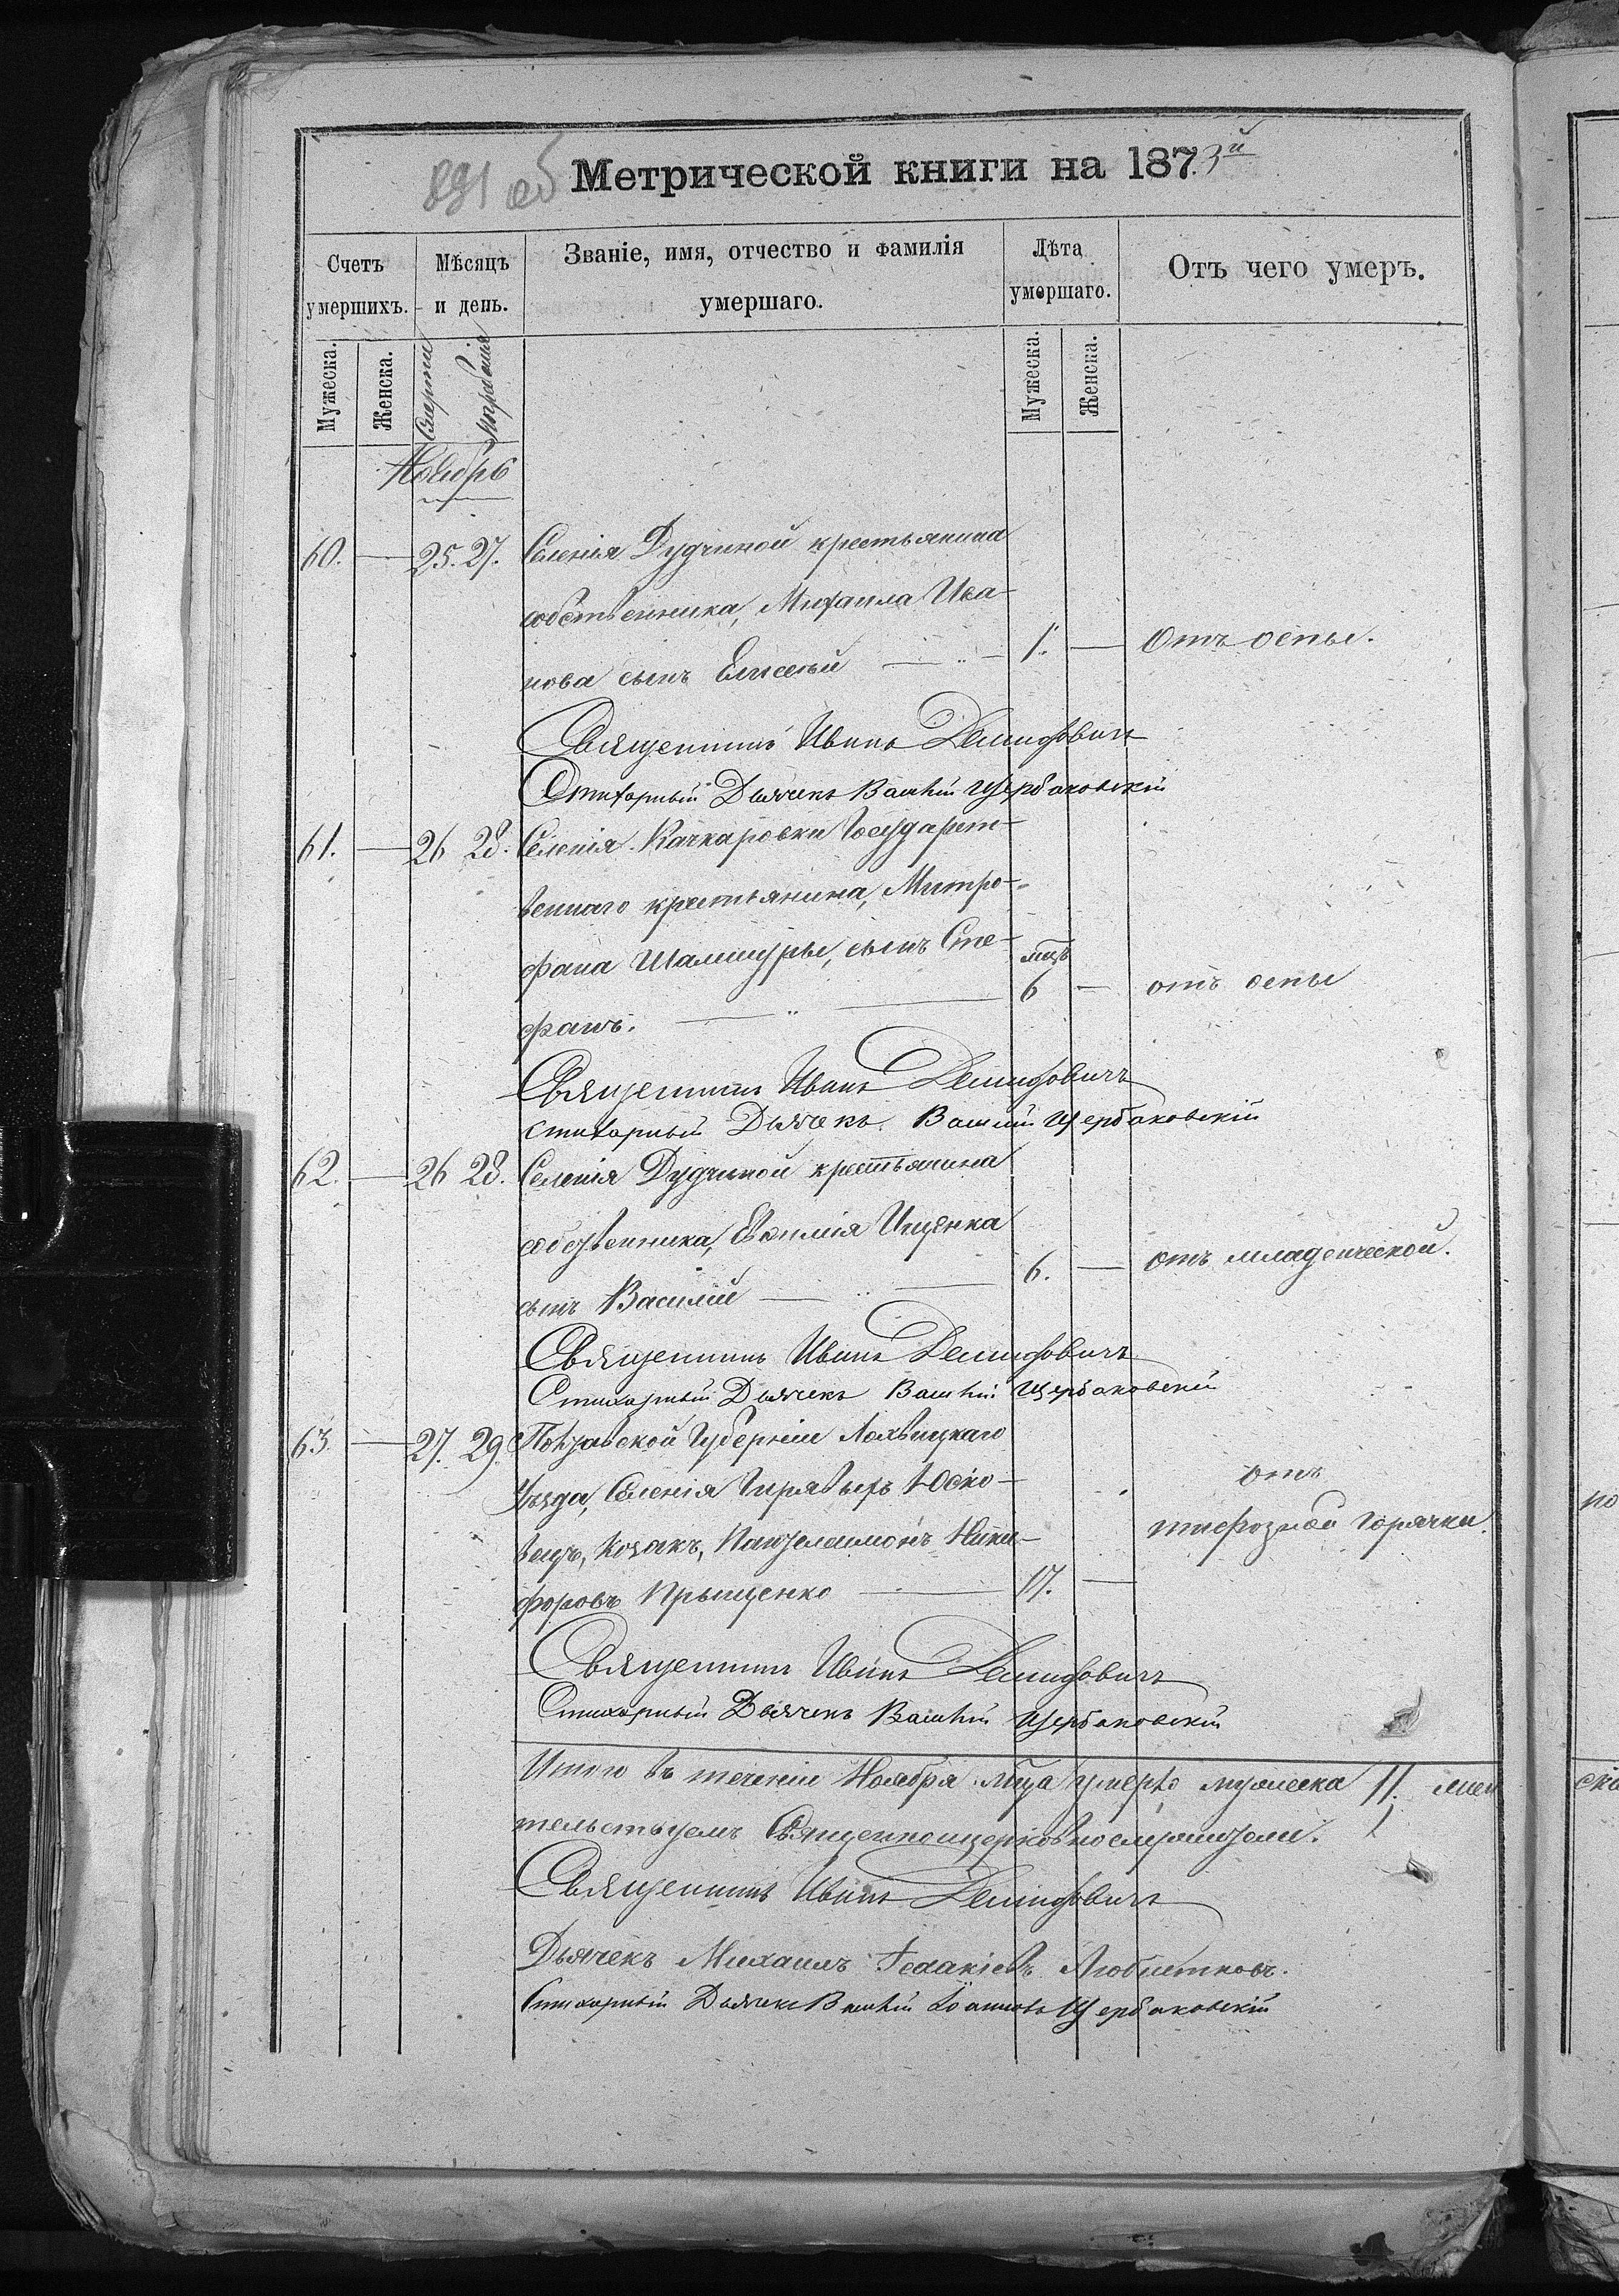 891 об Метрической книги на 1873й
Счетъ умершихъ.
Мѣсяцъ и день.
Званіе, имя, отчество и фамилія умершаго.
Лѣта умершаго.
Отъ чего умеръ.
Мужеска. Женска. Смерти Погребенія Мужеска. Женска.
Ноябрь
60. — 25. 27. Селенія Дудчиной крестьянина
собственника, Михаила Ива-
нова сынъ Елисей — 1. — Отъ оспы.
Священникъ Иванъ Демидовичъ
Стихарный Дьячекъ Василій Щербаковскій
61. — 26 28. Селенія Качкаровки Государст-
веннаго крестьянина, Митро-
фана Шамшуры, сынъ Сте- мцъ
фанъ. — 6 — отъ оспы
Священникъ Иванъ Демидовичъ
Стихарный Дьячекъ Василій Щербаковскій
62. — 26 28. Селенія Дудчиной крестьянина
собственника, Евфимія Ищенка
сынъ Василій — 6. — отъ младенческой.
Священникъ Иванъ Демидовичъ
Стихарный Дьячекъ Василій Щербаковскій
63 — 27. 29. Полтавской Губерніи Лохвицкаго
Уѣзда, Селенія Гирявыхъ Юско- отъ
вецъ, Козакъ, Пантелеимонъ Ники- тифозной горячки.
форовъ Прыщенко — 17. —
Священникъ Иванъ Демидовичъ
Стихарный Дьячекъ Василій Щербаковскій
Итого въ теченіи Ноября мѣца умерло мужеска 11.
тельствуемъ Священноицерковнослужители.
Священникъ Иванъ Демидовичъ
Дьячекъ Михаилъ Ісаакіевъ Любистковъ.
Стихарный Дьячекъ Василій Іоанновъ Щербаковскій